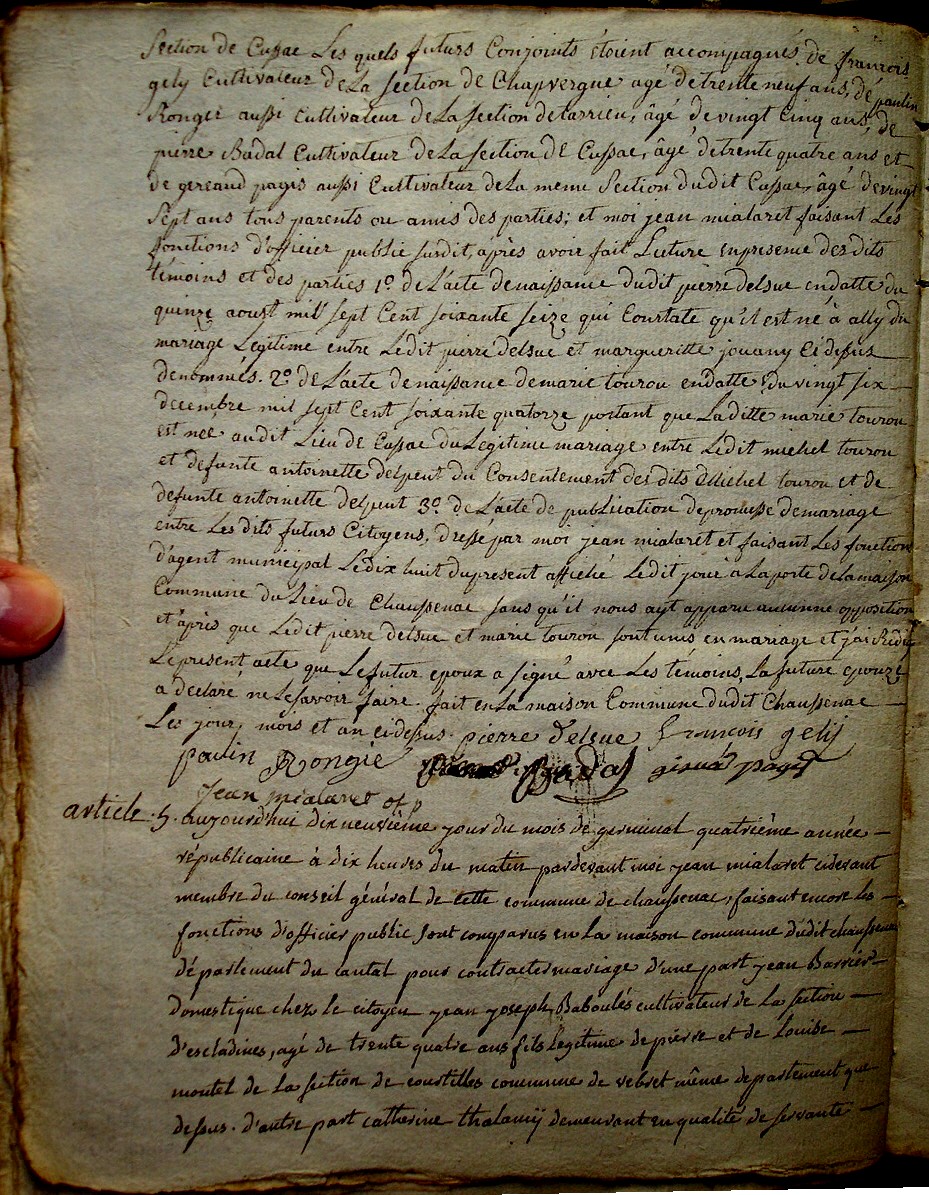 Section de Cussac Les quels futurs Conjoints étoient accompagnés de francois
gely Cultivateur de La Section de Chapvergne agé de trente neuf ans, de paulin
Rongier aussi Cultivateur de La Section de tarrieu, âgé de vingt Cinq ans, de
pierre Badal Cultivateur de La Section de Cussac, âgé de trente quatre ans et
de geraud pagis aussi Cultivateur de La meme Section dudit Cussac, âgé de vingt
Sept ans tous parents ou amis des parties; et moi jean mialaret faisant Les
fonctions d'officier public susdit, après avoir fait Luture en presence des dits
témoins et des parties 1o. de L'acte de naissance dudit pierre delsuc en datte du
quinze aoust mil sept Cent soixante seize qui Constate qu'il est né à ally du
mariage Legitime entre Ledit pierre delsuc et margueritte jouany Ci dessus
denommés. 2o. de L'acte de naissance de marie tourou en datte du vingt six
decembre mil sept Cent soixante quatorze portant que Laditte marie tourou
est née audit Lieu de Cussac du Legitime mariage entre Ledit michel tourou
et defunte antoinette delpeut du Consentement des dits Michel tourou et de
defunte antoinette delpeut 3o. de L'acte de publication de promesse de mariage
entre Les dits futurs Citoyens, dressé par moi jean mialaret et faisant Les fonctions
d'agent municipal Le dix huit du present affiché Ledit jour a La porte de La maison
Commune du Lieu de Chaussenac sans qu'il nous ayt apparu aucunne opposition
et après que Ledit pierre delsuc et marie tourou sont unis en mariage et j'ai Rédigé
Le present acte que Le futur epoux a signé avec Les témoins, La future epouze
a declaré ne Le savoir faire. fait en La maison Commune dudit Chaussenac
Les jour, mois et an ci dessus. pierre delsuc francois gely
paulin Rongié Badal pages
Jean mialaret of p
article. 5. aujourd'hui dix neuvième jour du mois de germinal quatrième année
républicaine à dix heures du matin pardevant moi jean mialaret cidevant
membre du conseil général de cette commune de chaussenac, faisant encore les
fonctions d'officier public sont comparus en La maison commune dudit chaussenac
département du cantal pour contracter mariage d'une part jean Barrier
domestique chez le citoyen jean joseph Baboulés cultivateur de La section
d'escladines, agé de trente quatre ans fils Legitime de pierre et de Louise
montel de La section de courtilles commune de vebret même departement que
dessus. d'autre part catherine thalamy demeurant en qualité de servante